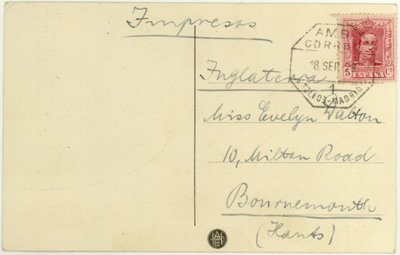 Impresos
AMB
CORRE
18 SEP 26
1
MADRID
5 Cs
ESPAÑA
Inglaterra
Miss Evelyn Walton
10, Milton Road
Bournemouth
(Hants)